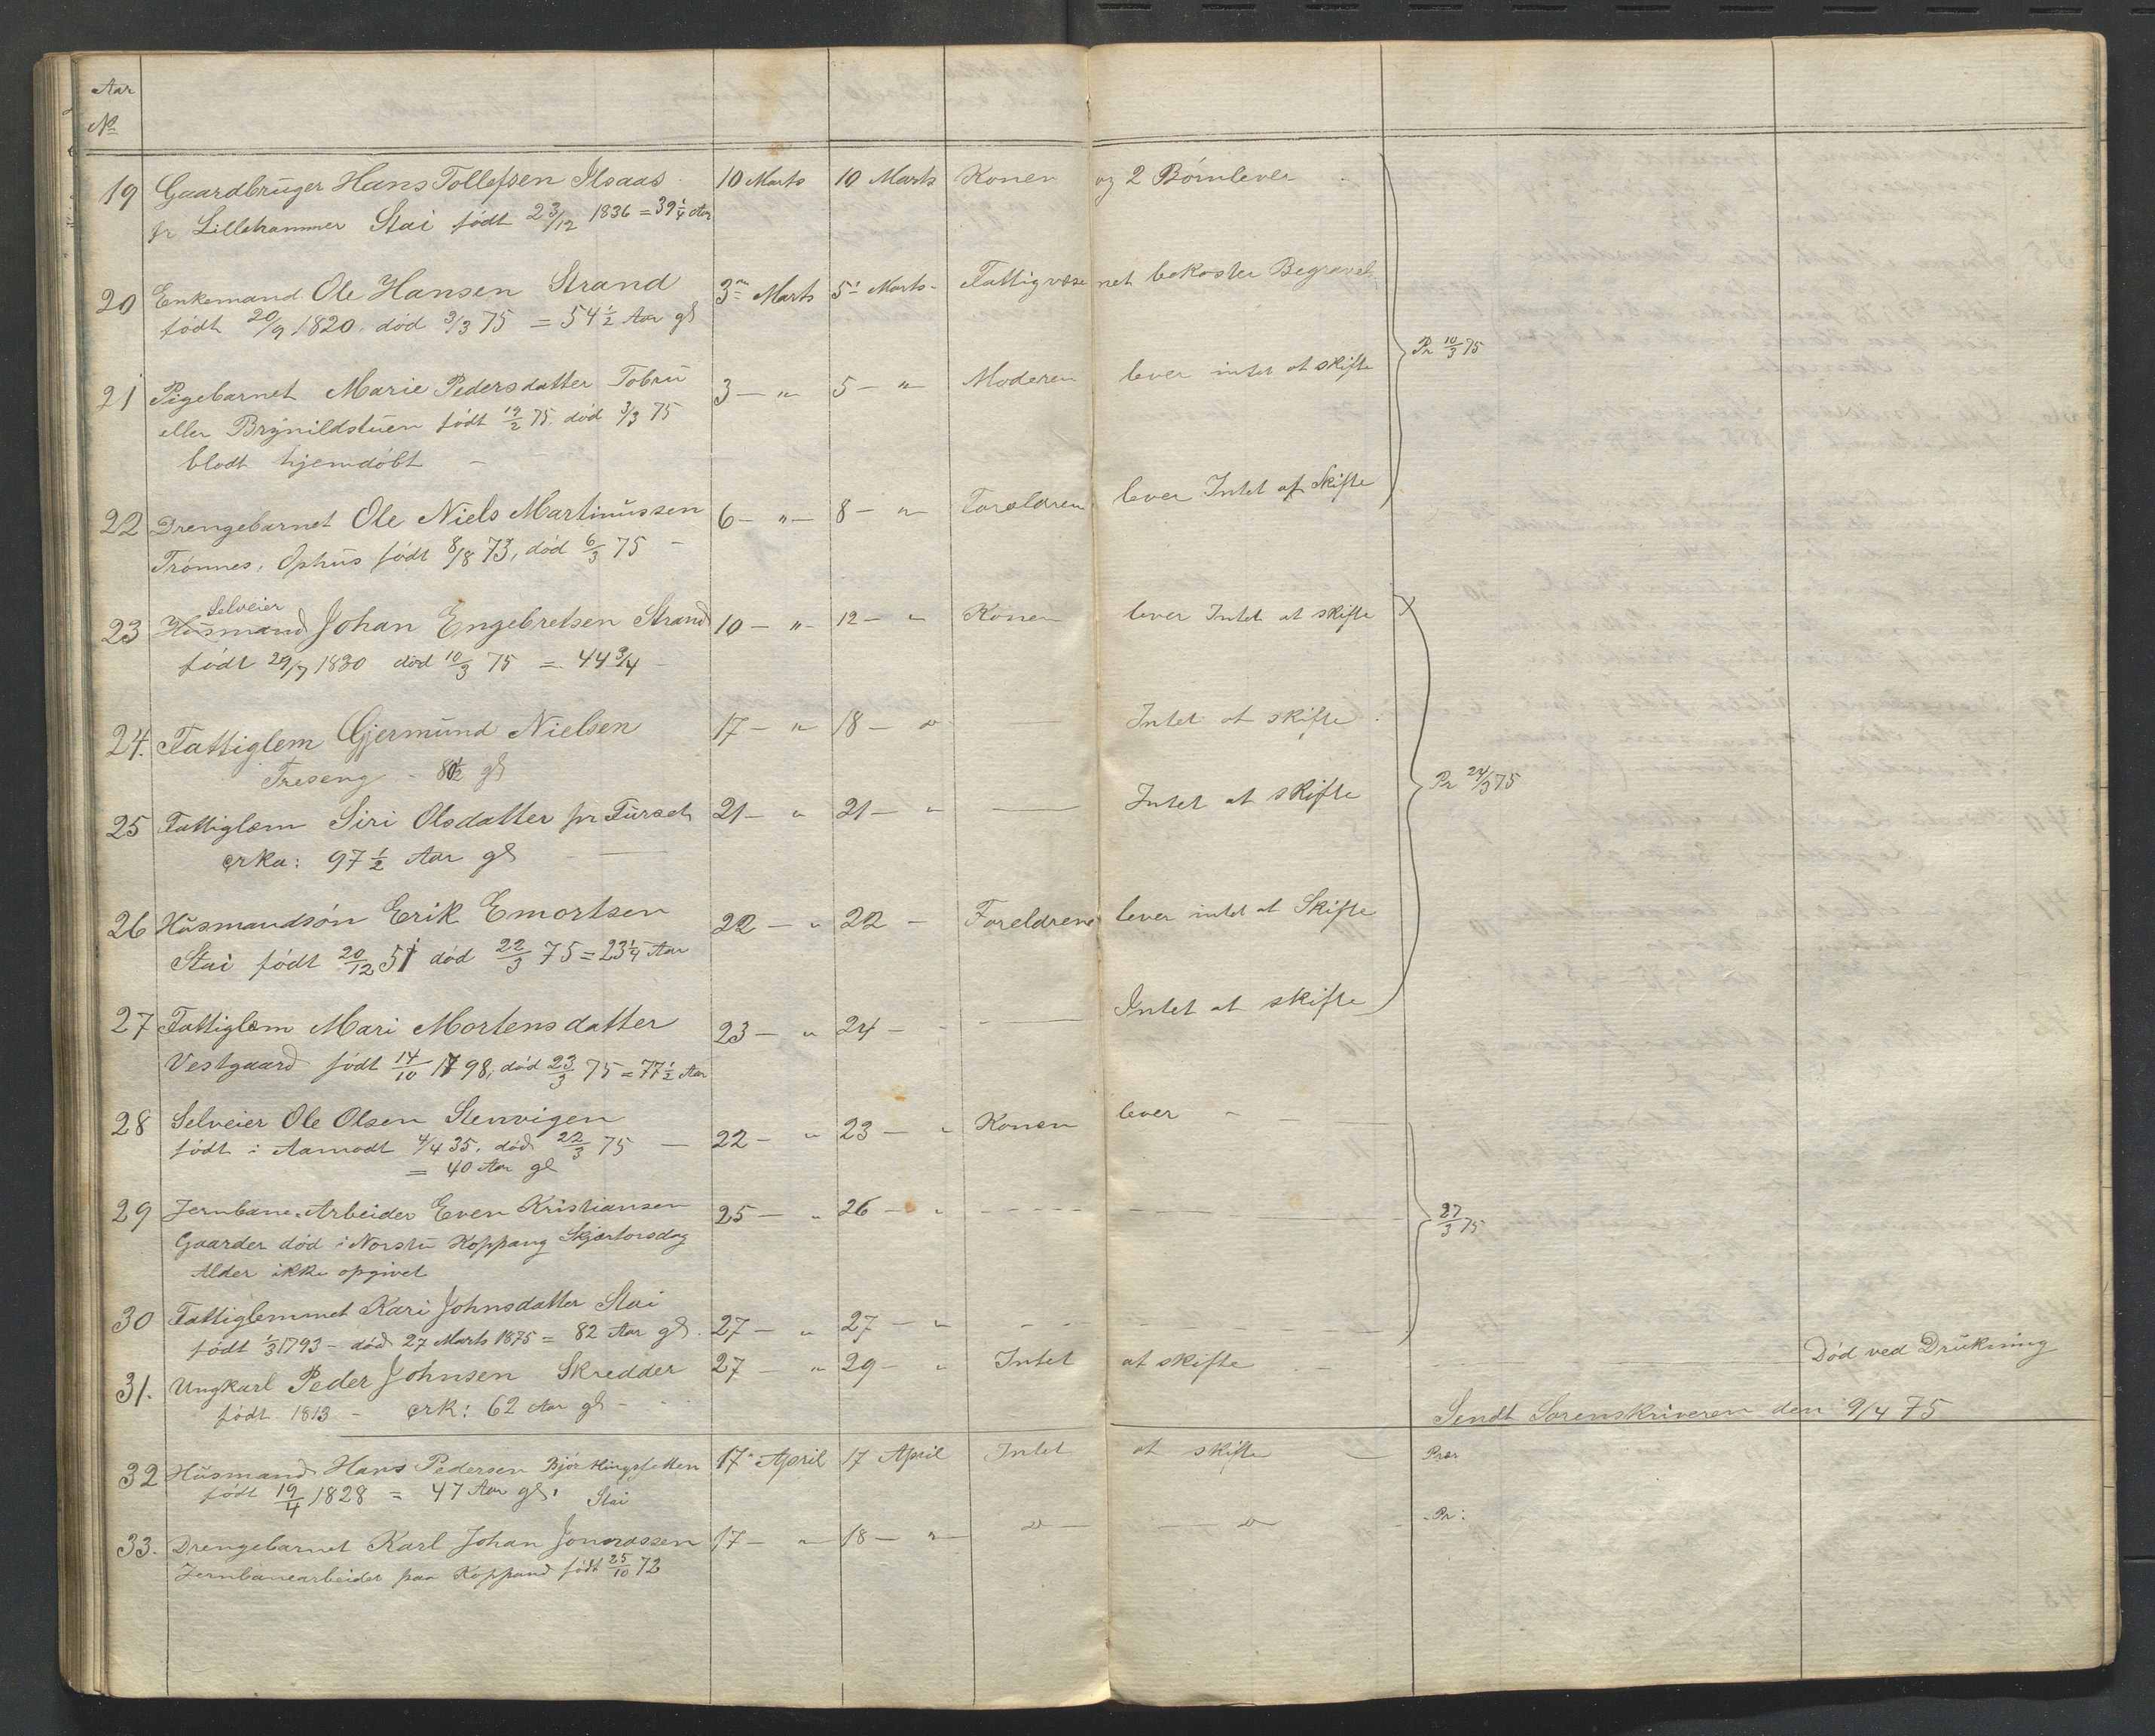 Aar
No
19 Gaardbruger Hans Tollefsen Ilsaas 10 Marts 10 Marts Konen og 2 Børn lever
fr Lillehammer Stai født 23/12 1836 = 39 1/4 Aar
20 Enkemand Ole Hansen Strand 3die Marts 5' Marts Fattigvæsenet bekoster Begravels
født 20/9 1820. død 3/3 75 = 54 1/2 Aar gl
21 Pigebarnet Marie Pedersdatter Tobru 3 — " 5 — " Moderen lever intet at skifte Pr 10/3 75
eller Brynildstuen født 19/2 75, død 3/3 75
blodt hjemdøbt —
22 Drengebarnet Ole Niels Martinussen 6 — " 8 — " Forældren lever Intet at Skifte
Trønnes, Ophus født 8/8 73, død 6/3 75 —
Selveier
23 Husmand Johan Engebretsen Strand 10 — " 12 — " Konen lever Intet at skifte X
født 29/7 1830 død 10/3 75 = 44 3/4
24. Fattiglem Gjermund Nielsen 17 — " 18 — " — Intet at skifte
Treseng - 80 1/2 gl Pr 24/3 75
25 Fattiglæm Siri Olsdatter pr Furset 21 — " 21 — " — Intet at skifte
crka: 97 1/2 Aar gl —
26 Husmandsøn Erik Emortsen 22 — " 22 — Foreldrene lever intet at Skifte
Stai født 20/12 51 død 22/3 75 = 23 1/4 Aar
27 Fattiglæm Mari Mortensdatter 23 — " 24 — — Intet at skifte
Vestgaard født 14/10 1798, død 23/3 75 = 77 1/2 Aar
28 Selveier Ole Olsen Stenvigen 22 — " 23 — " Konen lever
født i Aamodt 4/4 35. død 22/3 75 —
= 40 Aar gl
29 Jernbane-Arbeider Even Kristiansen 25 — " 26 — " 27/3 75
Gaarder død i Norstu Koppang Skjærtorsdag
Alder ikke opgivet
30 Fattiglemmet Kari Johnsdatter Stai 27 — " 27 — "
født 1/3 1793 – død 27 Marts 1875 = 82 Aar gl.
31. Ungkarl Peder Johnsen Skredder 27 — " 29 — " Intet at skifte — Død ved Drukning
født 1813 – crk: 62 Aar gl –
Sendt Sorenskriveren den 9/4 75
32 Husmand Hans Pedersen 17' April 17 April Intet at skifte — Præs
født 19/4 1828 = 47 Aar gl, Stai
33. Drengebarnet Karl Johan 17 — " 18 — " do — do Pr:
Jernbanearbeider paa Koppand født 25/10 72